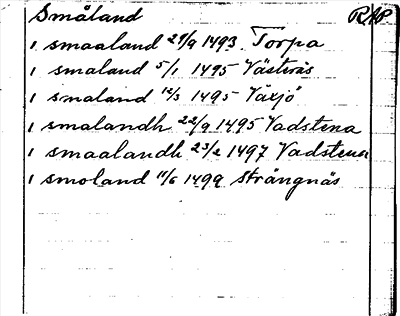 Småland RAP
i smaaland 29/9 1493. Torpa
i smaland 5/1 1495 Västerås
i smaland 12/3 1495 Växjö
i smalandh 22/9 1495 Vadstena
i smaalandh 23/2 1497 Vadstena
i smoland 11/6 1499 Strängnäs